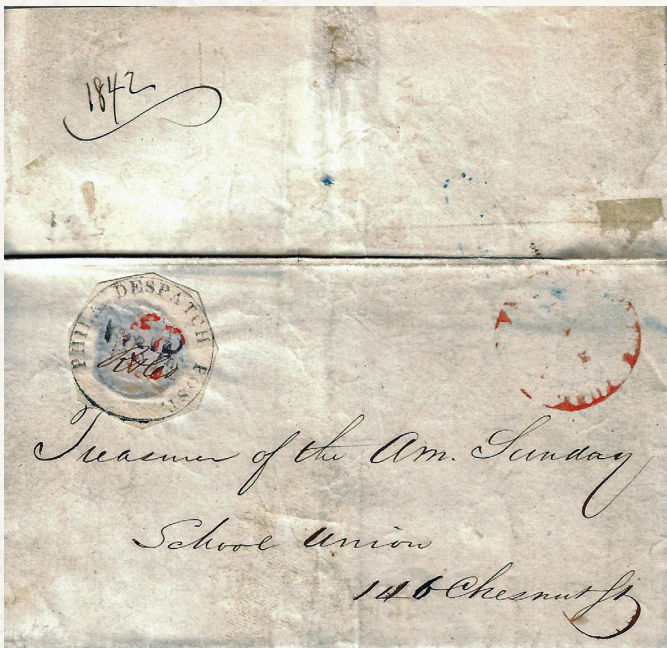 1842
PHILA DESPATCH POST
PAID
R&Co
Treasurer of the Am. Sunday
School Union
146 Chesnut St